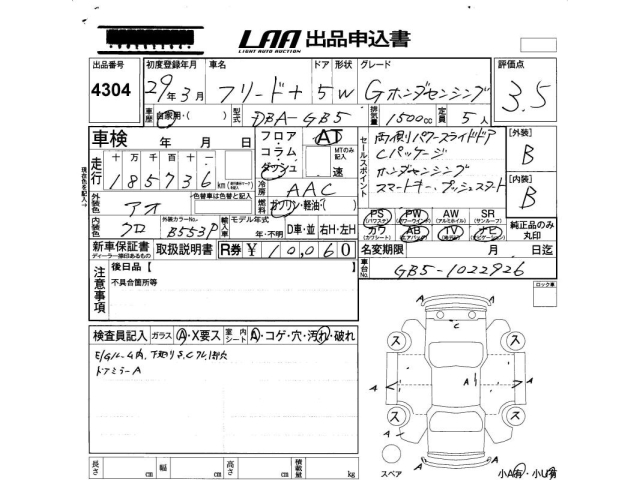 LAA 出品申込書
LIGHT AUTO AUCTION
出品番号 初度登録年月 車名 ドア 形状 グレード 評価点
4304 29年3月 フリード+ 5 W Gホンダセンシング 3.5
車歴 自家用・( ) 型式 DBA-GB5 排気量 1500cc 定員 5人
車検 年 月 日
フロア・コラム・ダッシュ AT
MTのみ記入
速
セールスポイント
両側パワースライドドア
Cパッケージ
ホンダセンシング
スマートキー、プッシュスタート
[外装]
B
[内装]
B
走行 十 万 千 百 十 一
185736 km
冷房 AAC
燃料 ガソリン・軽油・( )
外装色 アオ 色替車は色替と記入
内装色 クロ 外装カラーNo. B553P
輸入車 モデル年式 年・不明 D車・並 右H・左H
PS PW AW SR
カワ AB TV ナビ
純正品のみ丸印
新車保証書 取扱説明書 R券 ¥ 10,060
ディーラー捺印あるもの
名変期限 月 日迄
車台No. GB5-1022926
注意事項
後日品【 】
不具合箇所等
ロック車
検査員記入 ガラス A・X要ス 室内シート A・コゲ・穴・汚れ・破れ
ドアミラーA
長さ cm 幅 cm 高さ cm 積載量 kg
A A
C
ス ス
A A A
ス ス
A A
スペア
小A有・小U有